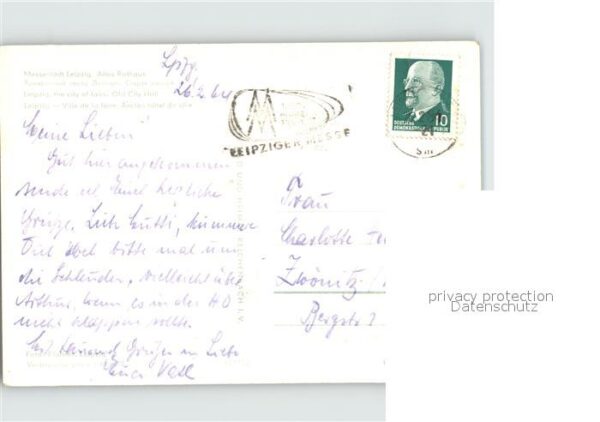 Lpzg.
26.2.64
Messestadt Leipzig, Altes Rathaus
Leipzig, the city of fairs, Old City Hall
Leipzig — Ville de la foire, Ancien hôtel de ville
LEIPZIGER MESSE
10
DEUTSCHE
DEMOKRATISCHE REPUBLIK
Meine Lieben!
Gut hier angekommen
sende ich Euch herzliche
Grüße. Liebe Mutti, kümmere
Dich doch bitte mal um
die Schleuder, vielleicht über
Arthur, wenn es in der HO
nicht klappen sollte.
Grüßen in Liebe
Euer
Frau
Charlotte
Zwönitz
Bergstr
privacy protection
Datenschutz